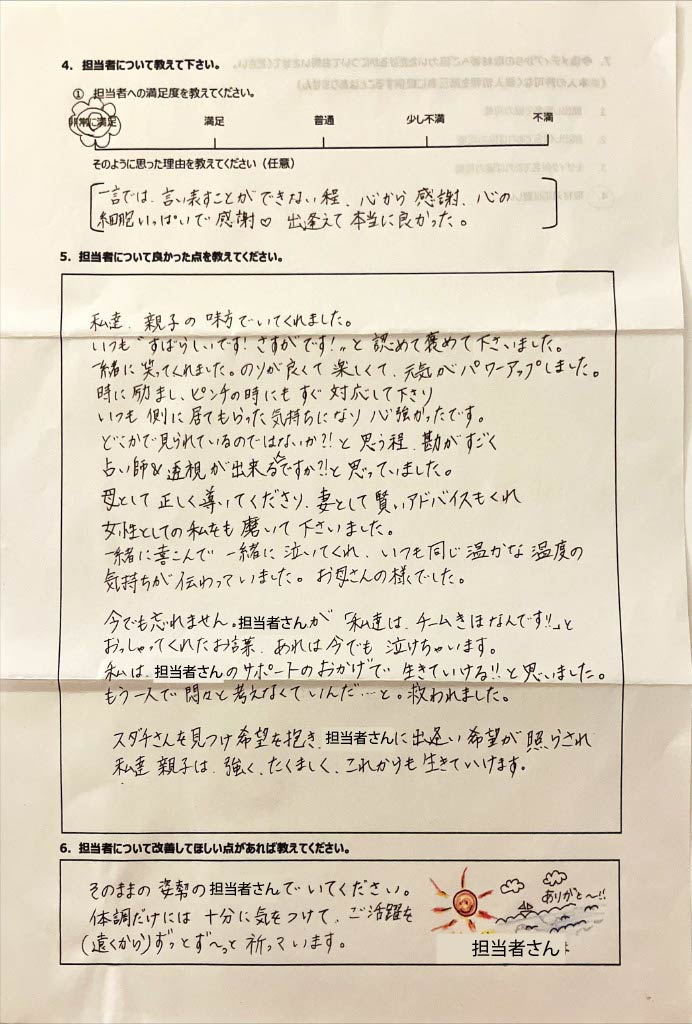 4. 担当者について教えて下さい。
① 担当者への満足度を教えてください。
非常に満足 満足 普通 少し不満 不満
そのように思った理由を教えてください（任意）
一言では、言い表すことができない程、心から感謝、心の
細胞いっぱいで感謝♡ 出逢えて本当に良かった。
5. 担当者について良かった点を教えてください。
私達、親子の味方でいてくれました。
いつも“すばらしいです！さすがです！„と認めて褒めて下さいました。
一緒に笑ってくれました。のりが良くて楽しくて、元気がパワーアップしました。
時に励まし、ピンチの時にもすぐ対応して下さり
いつも側に居てもらった気持ちになり心強かったです。
どこかで見られているのではないか？！と思う程、勘がすごく
占い師&透視が出来るですか？！と思っていました。
母として正しく導いてくださり、妻として賢いアドバイスもくれ
女性としての私をも磨いて下さいました。
一緒に喜こんで一緒に泣いてくれ、いつも同じ温かな温度の
気持ちが伝わっていました。お母さんの様でした。
今でも忘れません。担当者さんが「私達は、チームきほなんです!!」と
おっしゃってくれたお言葉、あれは今でも泣けちゃいます。
私は、担当者さんのサポートのおかげで生きていける!!と思いました。
もう一人で悶々と考えなくていんだ…と。救われました。
スダチさんを見つけ希望を抱き、担当者さんに出逢い希望が照らされ
私達親子は、強く、たくましく、これからも生きていけます。
6. 担当者について改善してほしい点があれば教えてください。
そのままの姿勢の担当者さんでいてください。
体調だけには十分に気をつけて、ご活躍を
(遠くから)ずっとず〜っと祈っています。
ありがと〜!!
担当者さん